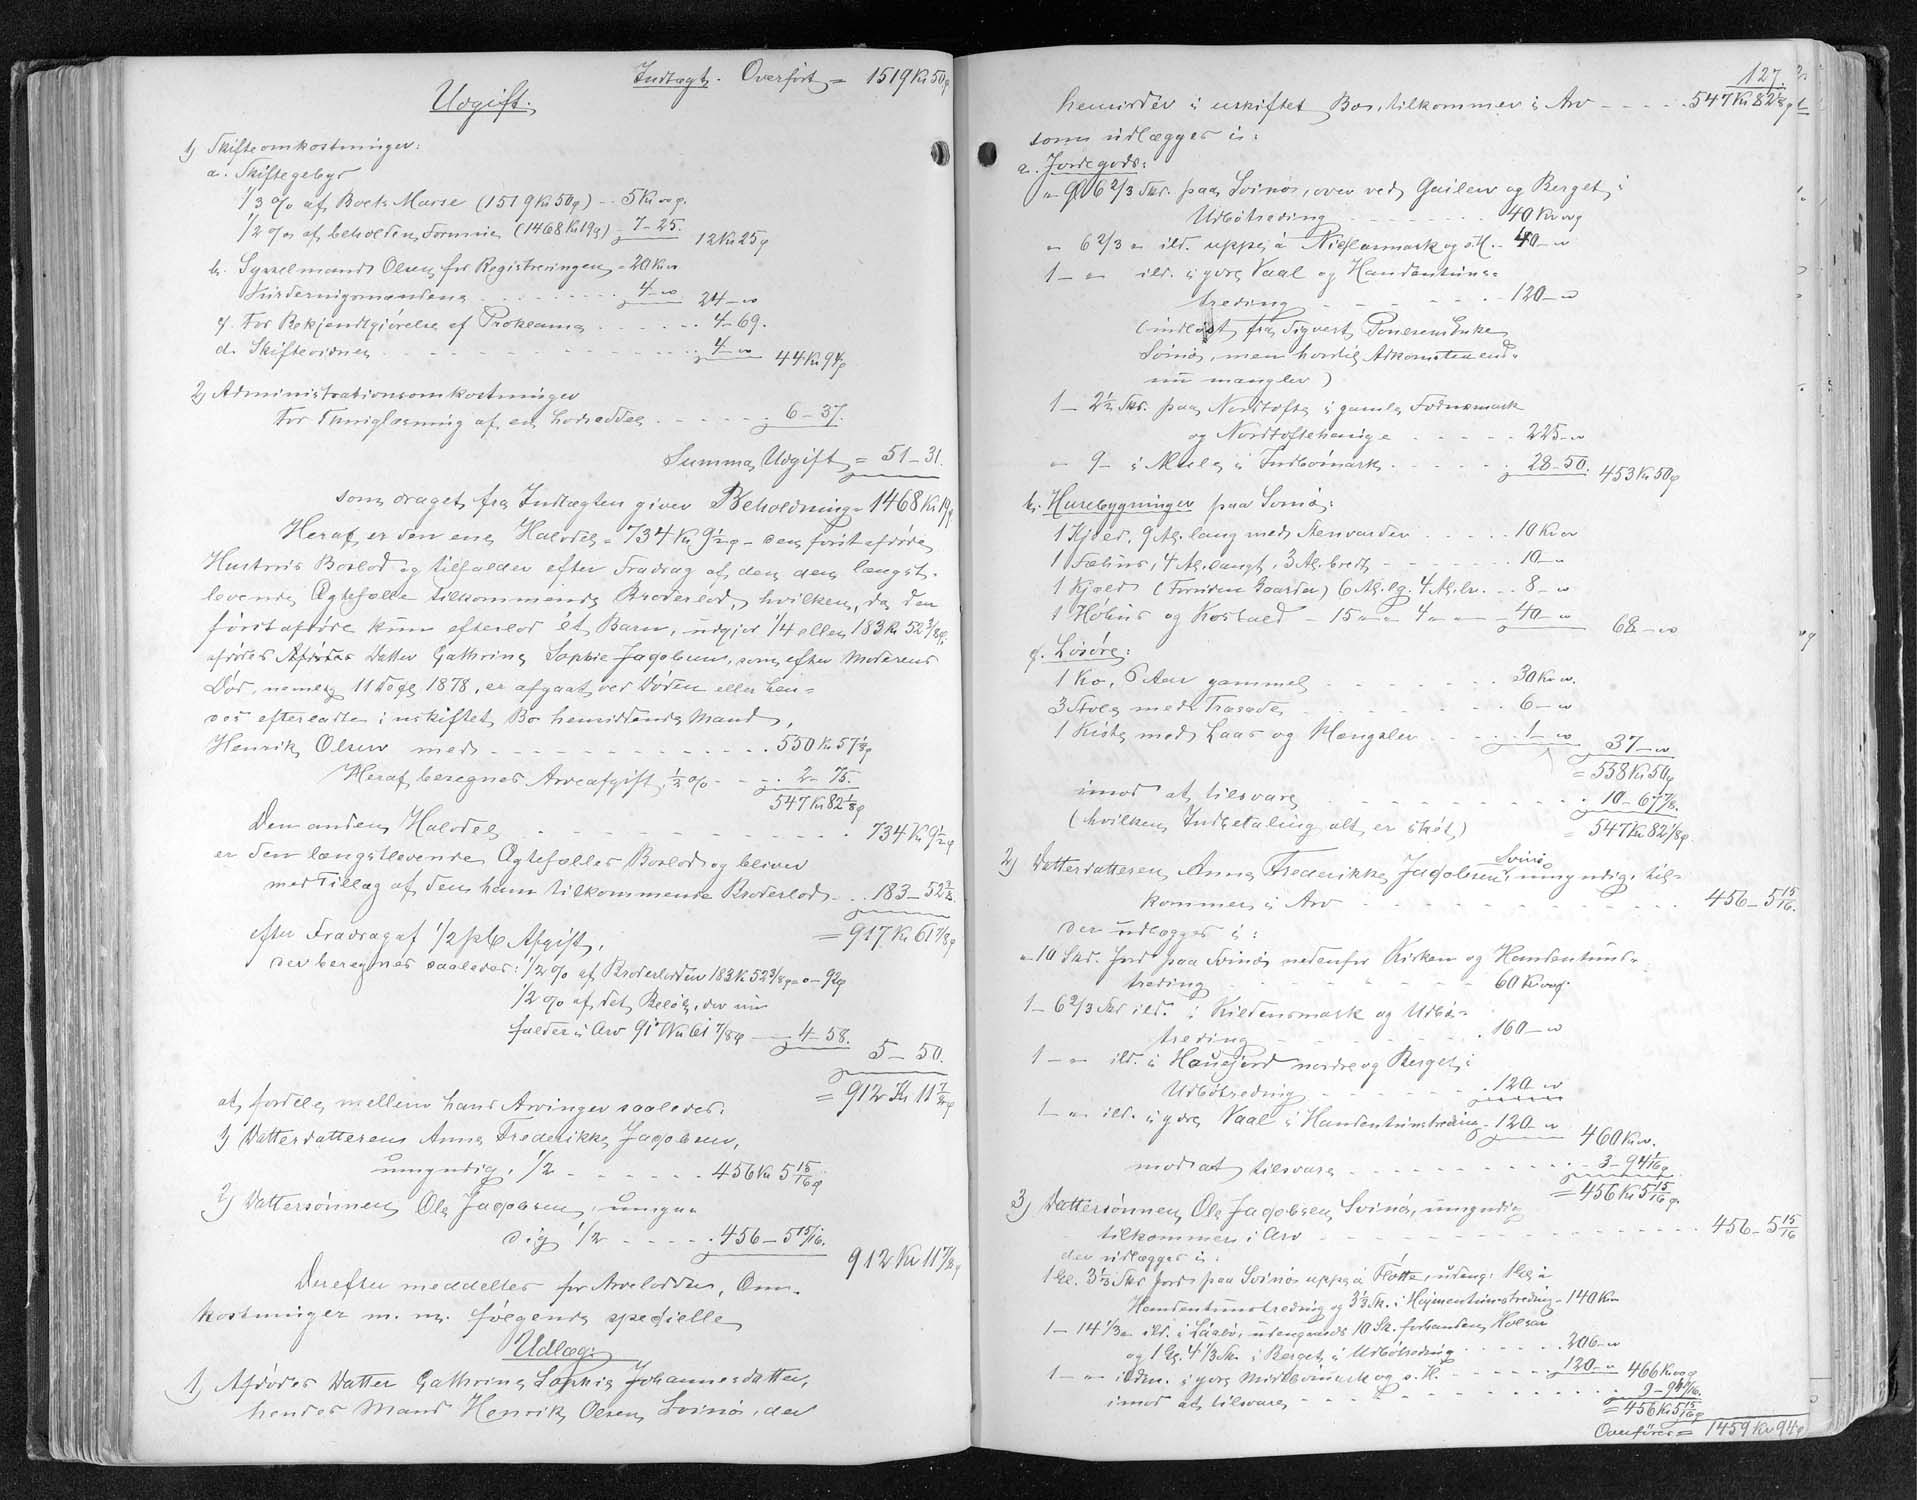 Indtægt. Overført = 1519 Kr 50 ø
Udgift.
1) Skifteomkostninger:
a. Skiftegebyr
1/3 % af Boets Masse (1519 Kr 50 ø) -- 5 Kr "" ø.
1/2 % af beholden Formue (1468 Kr 19 ø) - 7 - 25. 12 Kr 25 ø
b. Sysselmand Olsen for Registreringen - 20 Kr "
Vurderingsmændene 4 - " 24 - "
c. For Bekjendtgjørelse af Proklama 4 - 69.
d. Skifteordner 4 - " 44 Kr 94 ø
2) Administrationsomkostninger
For Thinglæsning af en Lodseddel 6 - 37.
Summa Udgift = 51 - 31.
som draget fra Indtægten giver Beholdning = 1468 Kr 19 ø
Heraf er den ene Halvdel = 734 Kr 9 1/2 ø - den først afdøde
Hustrus Boslod og tilfalder efter Fradrag af den den længst-
levende Ægtefælle tilkommende Broderlod, hvilken, da den
førstafdøde kun efterlod ét Barn, udgjør 1/4 eller 183 Kr 52 3/8 ø,
afdødes Datter Cathrine Sophie Jacobsen, som efter Moderens
Død, nemlig 11 Decbr 1878, er afgaaet ved Døden eller hen-
des efterladte i uskiftet Bo hensiddende Mand,
Henrik Olsen med 550 Kr 57 1/8 ø
Heraf beregnes Arveafgift 1/2 % 2 - 75.
547 Kr 82 1/8 ø
Den anden Halvdel 734 Kr 9 1/2 ø
er den længstlevende Ægtefælles Boslod og bliver
med Tillæg af den ham tilkommende Broderlod 183 - 52 3/8.
= 917 Kr 61 7/8 ø
efter Fradrag af 1/2 pCt Afgift,
der beregnes saaledes: 1/2 % af Broderlodden 183 Kr 52 3/8 ø = 0 - 92 ø
1/2 % af det Beløb, der nu
falder i Arv 917 Kr 61 7/8 ø 4 - 58. 5 - 50.
= 912 Kr 11 7/8 ø
at fordele mellem hans Arvinger saaledes:
1) Datterdatteren Anna Frederikke Jacobsen,
umyndig, 1/2 456 Kr 5 15/16 ø
2) Dattersønnen Ole Jacobsen, umyn-
dig 1/2 456 - 5 15/16. 912 Kr 11 7/8 ø
Derefter meddeltes for Arvelodder, Om-
kostninger m. m. følgende specielle
Udlæg:
1) Afdødes Datter Cathrine Sophie Johannesdatter,
hendes Mand Henrik Olsen, Svinø, der
127.
hensidder i uskiftet Bo, tilkommer i Arv 547 Kr 82 1/8 ø
som udlægges i:
a. Jordegods:
" G 6 2/3 Sk. paa Svinø, over ved Gailen og Berget i
Udbøtreding 40 Kr "" ø
" 6 2/3 " ild. uppe á og s. H. - 40 - "
1 - " " ild. i Vaal og Handantuns-
treding 120 - "
(indløst fra Sigvert Enke
Svinø, men hvortil Adkomsten end-
nu mangler)
1 - 2 1/2 Sk. paa Nordtofte i gamle
og Nordtoftehauge 225 - "
" 9 - i Mule i Indbømark 28 - 50. 453 Kr 50 ø
b. Husebygninger paa Svinø:
1 Hjeld, 9 Al. lang med Stenvarder 10 Kr "
1 Fæhus, 4 Al. langt, 3 Al. bredt 10 - "
1 Hjeld (Foruden Gaarden) 6 Al. lg. 4 Al. br. 8 - "
1 Høhus og Kostald - 15 " " 4 " " 40 - " 68 - "
c. Løsøre:
1 Ko, 6 Aar gammel 30 Kr "
3 Stole med Træsæde 6 - "
1 Kiste med Laas og Hængsler 1 - " 37 - "
= 558 Kr 50 ø
imod at tilsvare 10 - 67 7/8.
(hvilken Indbetaling alt er skét) = 547 Kr 82 1/8 ø
2) Datterdatteren Anna Frederikke Jacobsen, Svinø, umyndig, til-
kommer i Arv 456 - 5 15/16.
der udlægges i:
" 10 Sk. Jord paa Svinø nedenfor Kirken og Handantuns-
treding 60 Kr "" ø
1 - 6 2/3 Sk ild. i Kildensmark og Udbø-
treding 160 - "
1 - " ild. i nordre og Berget i
Udbøtreding 120 - "
1 - " ild. i Vaal i Handantunstreding - 120 - " 460 Kr ".
mod at tilsvare 3 - 94 1/16 ø
= 456 Kr 5 15/16 ø
3) Dattersønnen Ole Jacobsen, Svinø, umyndig
tilkommer i Arv 456 - 5 15/16
der udlægges i:
1 G. 3 1/3 Sk Jord paa Svinø uppe á Fløtte,
Handantunstreding og 3 1/3 Sk. i Heimentunstreding - 140 Kr "
1 - 14 1/3 " ild. i
og 1 G. 4 1/3 Sk. i Berget i Udbøtreding 206 - "
1 - " ildm. i og s. H. 120 - " 466 Kr "" ø
imod at tilsvare 9 - 94 1/16.
= 456 Kr 5 15/16 ø
Overføres = 1459 Kr 94 ø